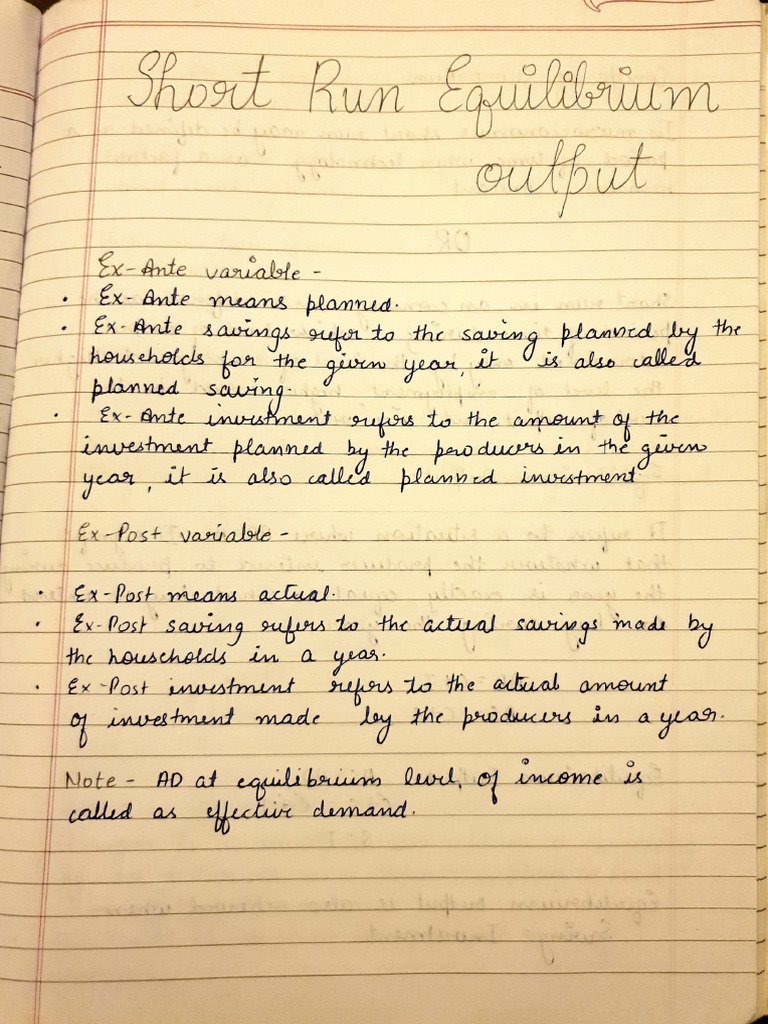 Short Run Equilibrium
output
Ex-Ante variable -
• Ex-Ante means planned.
• Ex-Ante savings refer to the saving planned by the
households for the given year, it is also called
planned saving.
• Ex-Ante investment refers to the amount of the
investment planned by the producers in the given
year, it is also called planned investment
Ex-Post variable -
• Ex-Post means actual.
• Ex-Post saving refers to the actual savings made by
the households in a year.
• Ex-Post investment refers to the actual amount
of investment made by the producers in a year.
Note - AD at equilibrium level, of income is
called as effective demand.